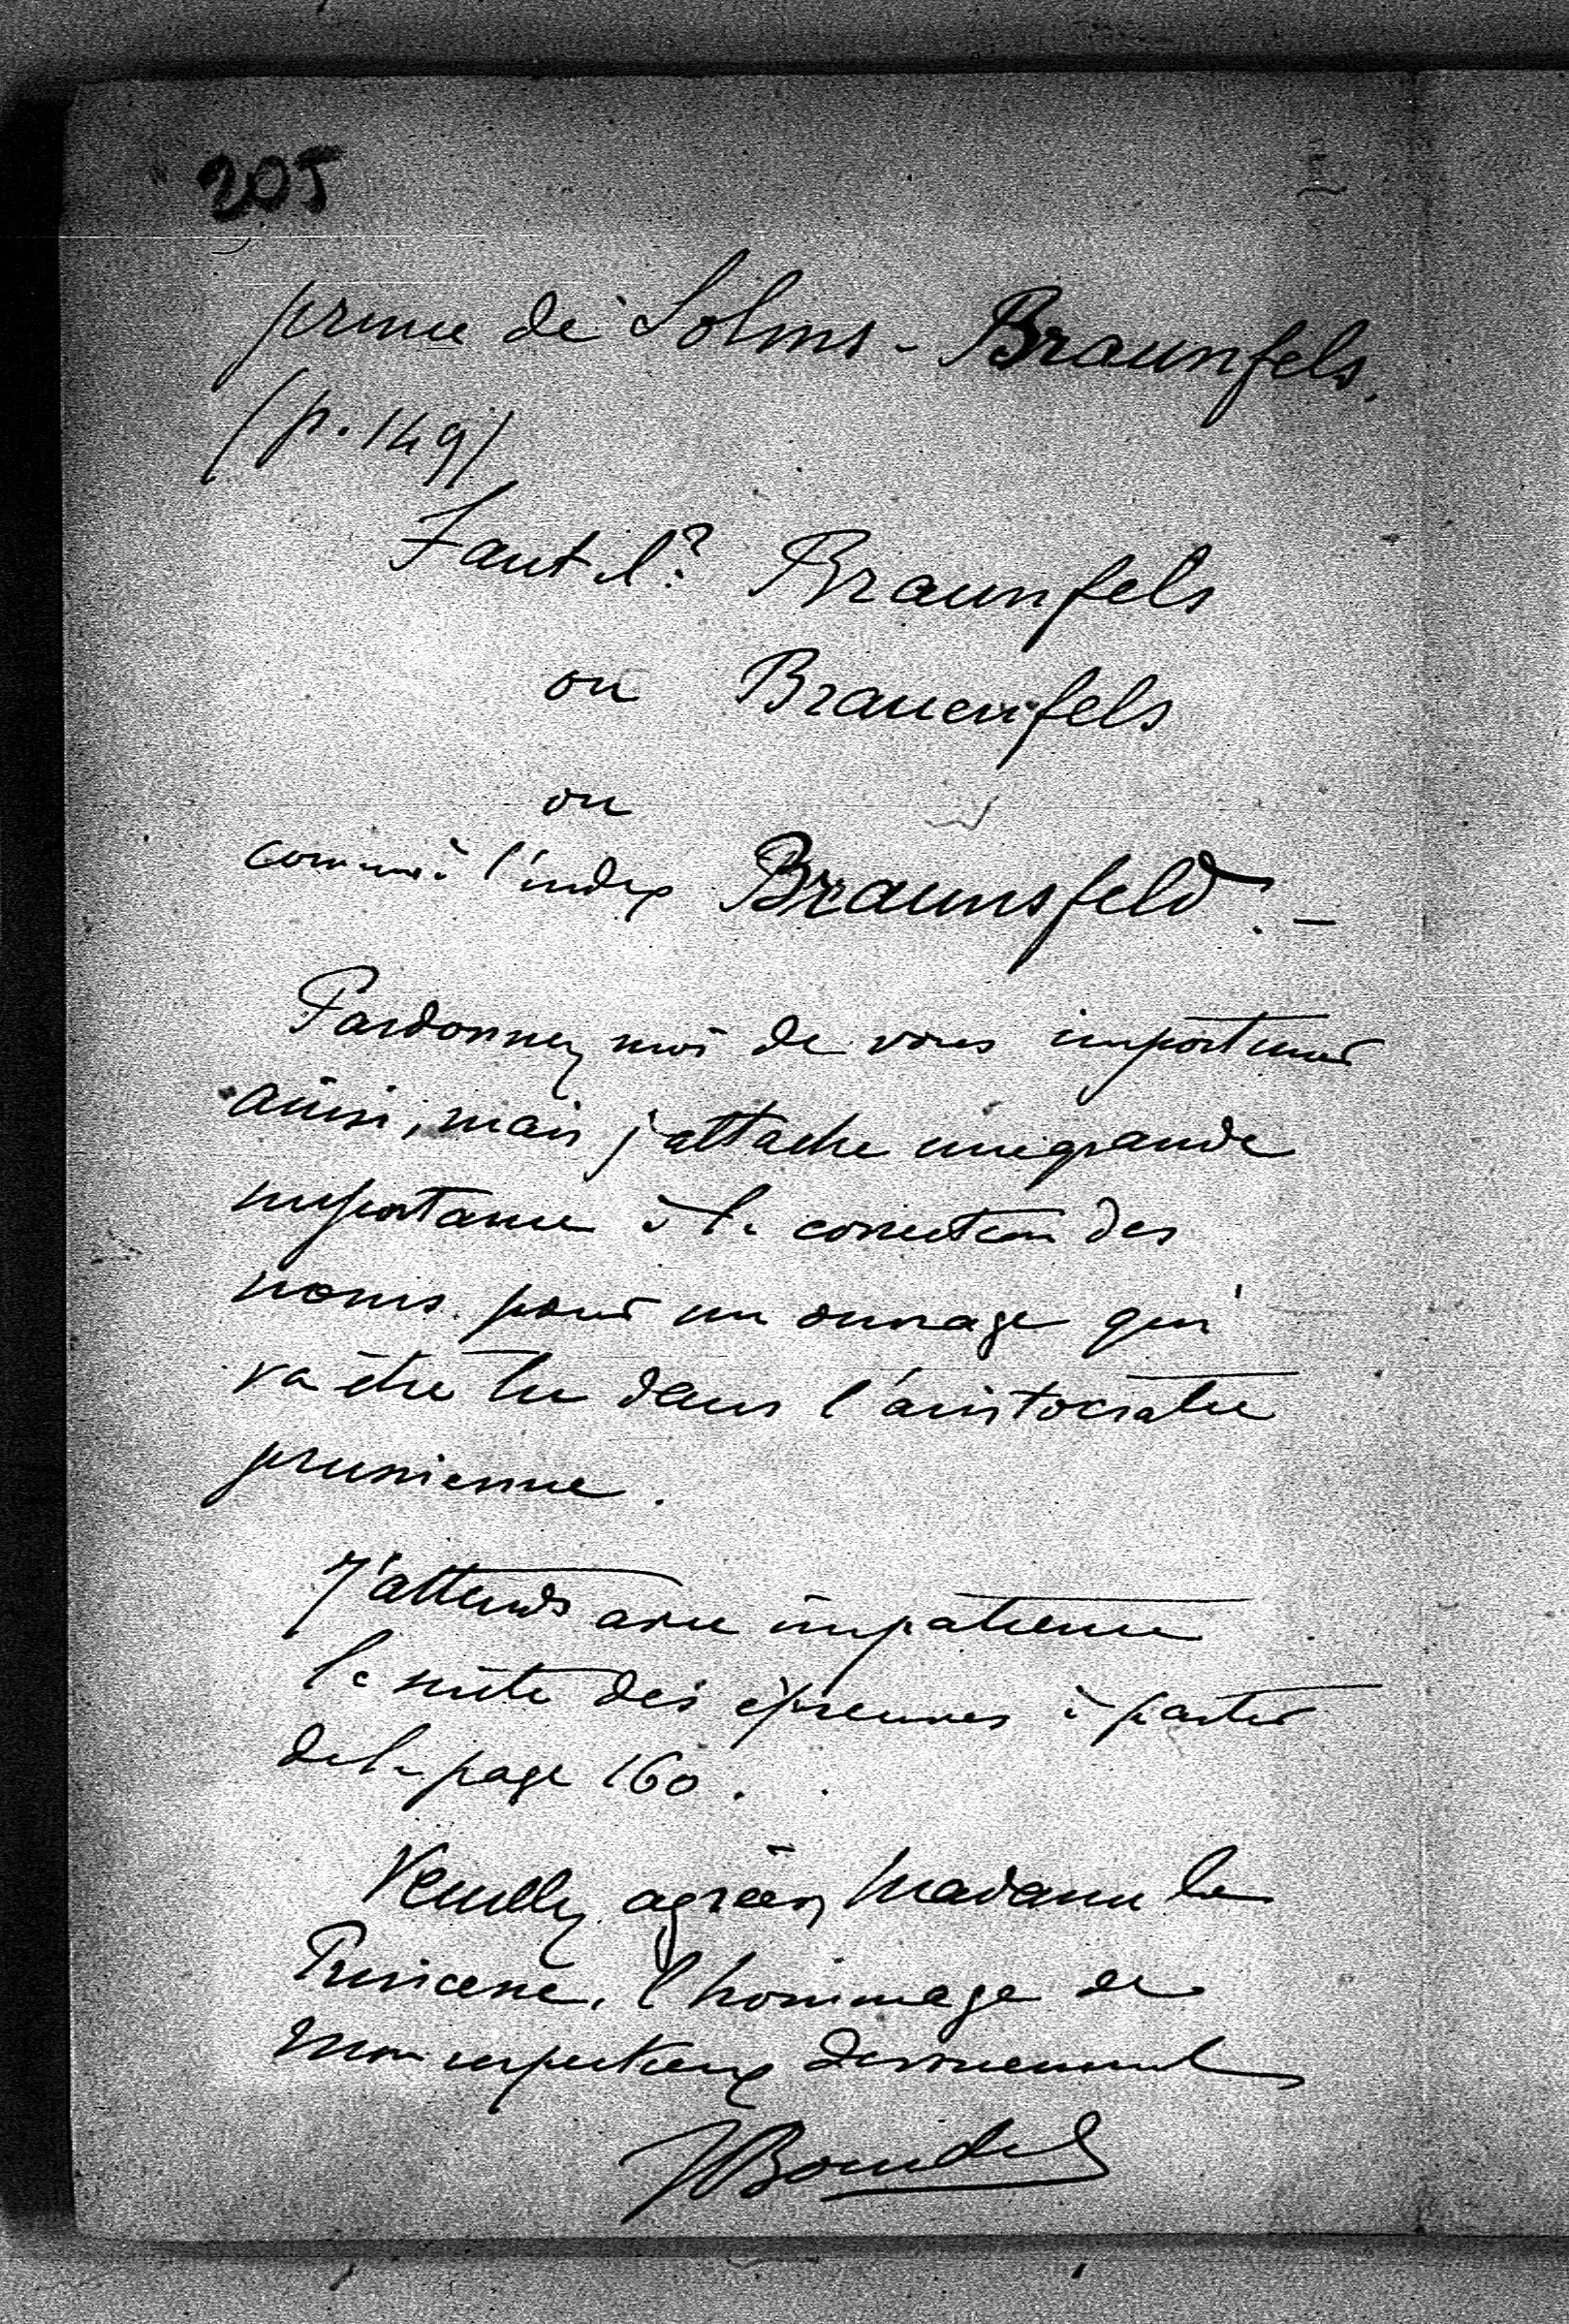 205
prince de Solms-Braunfels.
(p. 149)
Faut il? Braunfels
ou Brauenfels
ou
comme à l'index Braunsfeld? -
Pardonnez moi de vous importuner
ainsi, mais j'attache une grande
importance à la correction des
noms pour un ouvrage qui
va être lu dans l'aristocratie
prussienne.
J'attends avec impatience
la suite des épreuves à partir
de la page 160.
Veuillez agréer, Madame la
Princesse, l'hommage de
mon respectueux dévouement